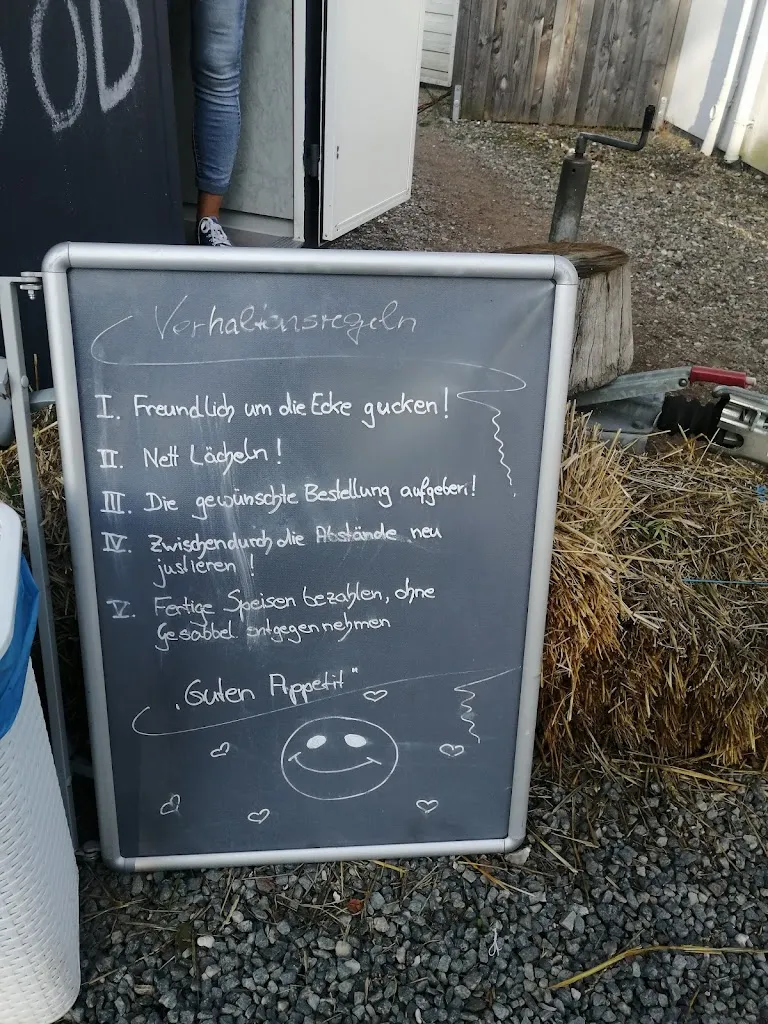 OD
Verhaltensregeln
I. Freundlich um die Ecke gucken!
II. Nett Lächeln!
III. Die gewünschte Bestellung aufgeben!
IV. Zwischendurch die Abstände neu
justieren!
V. Fertige Speisen bezahlen, ohne
Gesabbel entgegennehmen
„Guten Appetit"